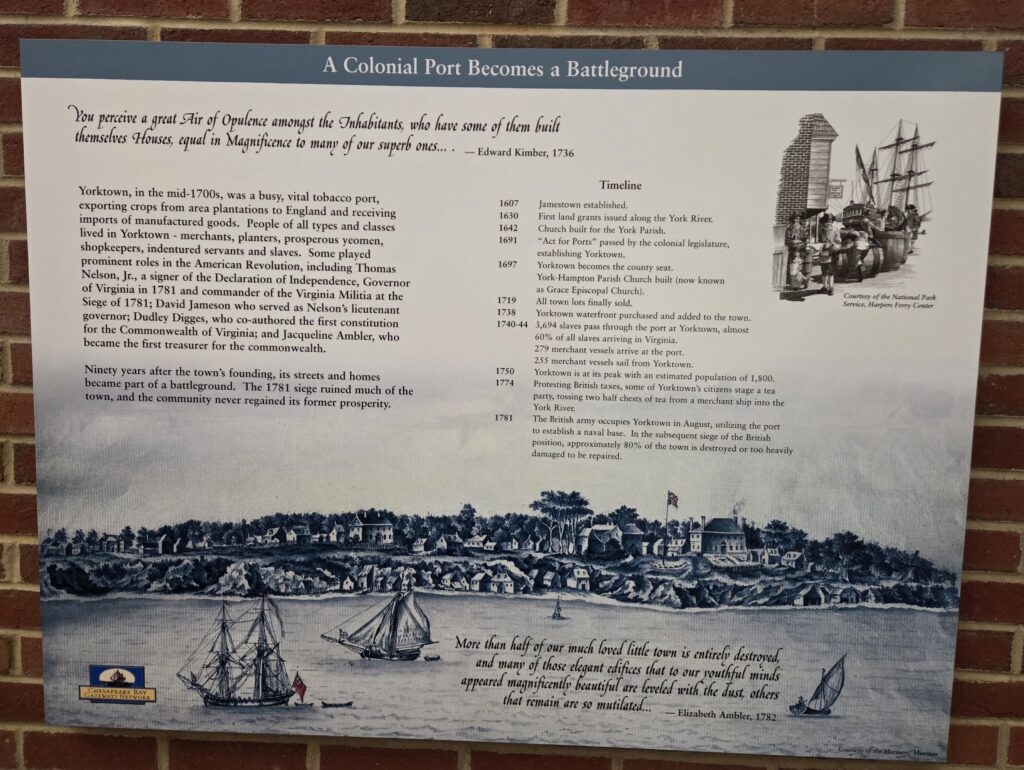 A Colonial Port Becomes a Battleground
You perceive a great Air of Opulence amongst the Inhabitants, who have some of them built
themselves Houses, equal in Magnificence to many of our superb ones... .
— Edward Kimber, 1736
Yorktown, in the mid-1700s, was a busy, vital tobacco port,
exporting crops from area plantations to England and receiving
imports of manufactured goods. People of all types and classes
lived in Yorktown - merchants, planters, prosperous yeomen,
shopkeepers, indentured servants and slaves. Some played
prominent roles in the American Revolution, including Thomas
Nelson, Jr., a signer of the Declaration of Independence, Governor
of Virginia in 1781 and commander of the Virginia Militia at the
Siege of 1781; David Jameson who served as Nelson's lieutenant
governor; Dudley Digges, who co-authored the first constitution
for the Commonwealth of Virginia; and Jacqueline Ambler, who
became the first treasurer for the commonwealth.
Ninety years after the town's founding, its streets and homes
became part of a battleground. The 1781 siege ruined much of the
town, and the community never regained its former prosperity.
Timeline
1607 Jamestown established.
1630 First land grants issued along the York River.
1642 Church built for the York Parish.
1691 "Act for Ports" passed by the colonial legislature,
establishing Yorktown.
1697 Yorktown becomes the county seat.
York-Hampton Parish Church built (now known
as Grace Episcopal Church).
1719 All town lots finally sold.
1738 Yorktown waterfront purchased and added to the town.
1740-44 3,694 slaves pass through the port at Yorktown, almost
60% of all slaves arriving in Virginia.
279 merchant vessels arrive at the port.
255 merchant vessels sail from Yorktown.
1750 Yorktown is at its peak with an estimated population of 1,800.
1774 Protesting British taxes, some of Yorktown's citizens stage a tea
party, tossing two half chests of tea from a merchant ship into the
York River.
1781 The British army occupies Yorktown in August, utilizing the port
to establish a naval base. In the subsequent siege of the British
position, approximately 80% of the town is destroyed or too heavily
damaged to be repaired.
Courtesy of the National Park
Service, Harpers Ferry Center
More than half of our much loved little town is entirely destroyed,
and many of those elegant edifices that to our youthful minds
appeared magnificently beautiful are leveled with the dust, others
that remain are so mutilated...
— Elizabeth Ambler, 1782
CHESAPEAKE BAY
GATEWAYS NETWORK
Courtesy of the Mariners' Museum